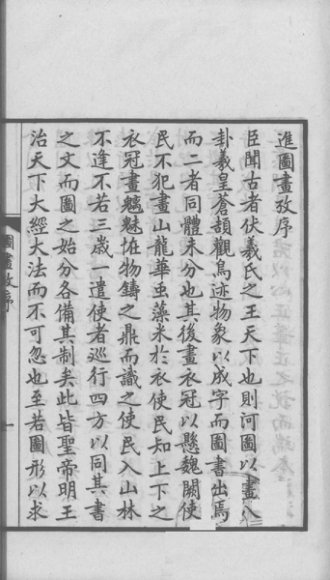 進圖畫攷序
臣聞古者伏羲氏之王天下也則河圖以畫八
卦羲皇蒼頡觀鳥迹物象以成字而圖書出焉
而二者同體未分也其後畫衣冠以懸魏闕使
民不犯畫山龍華虫藻米於衣使民知上下之
衣冠畫魑魅恠物鑄之鼎而識之使民入山林
不逢不若三歲一遣使者巡行四方以同其書
之文而圖之始分各備其制矣此皆聖帝明王
治天下大經大法而不可忽也至若圖形以求
圖畫攷序
一